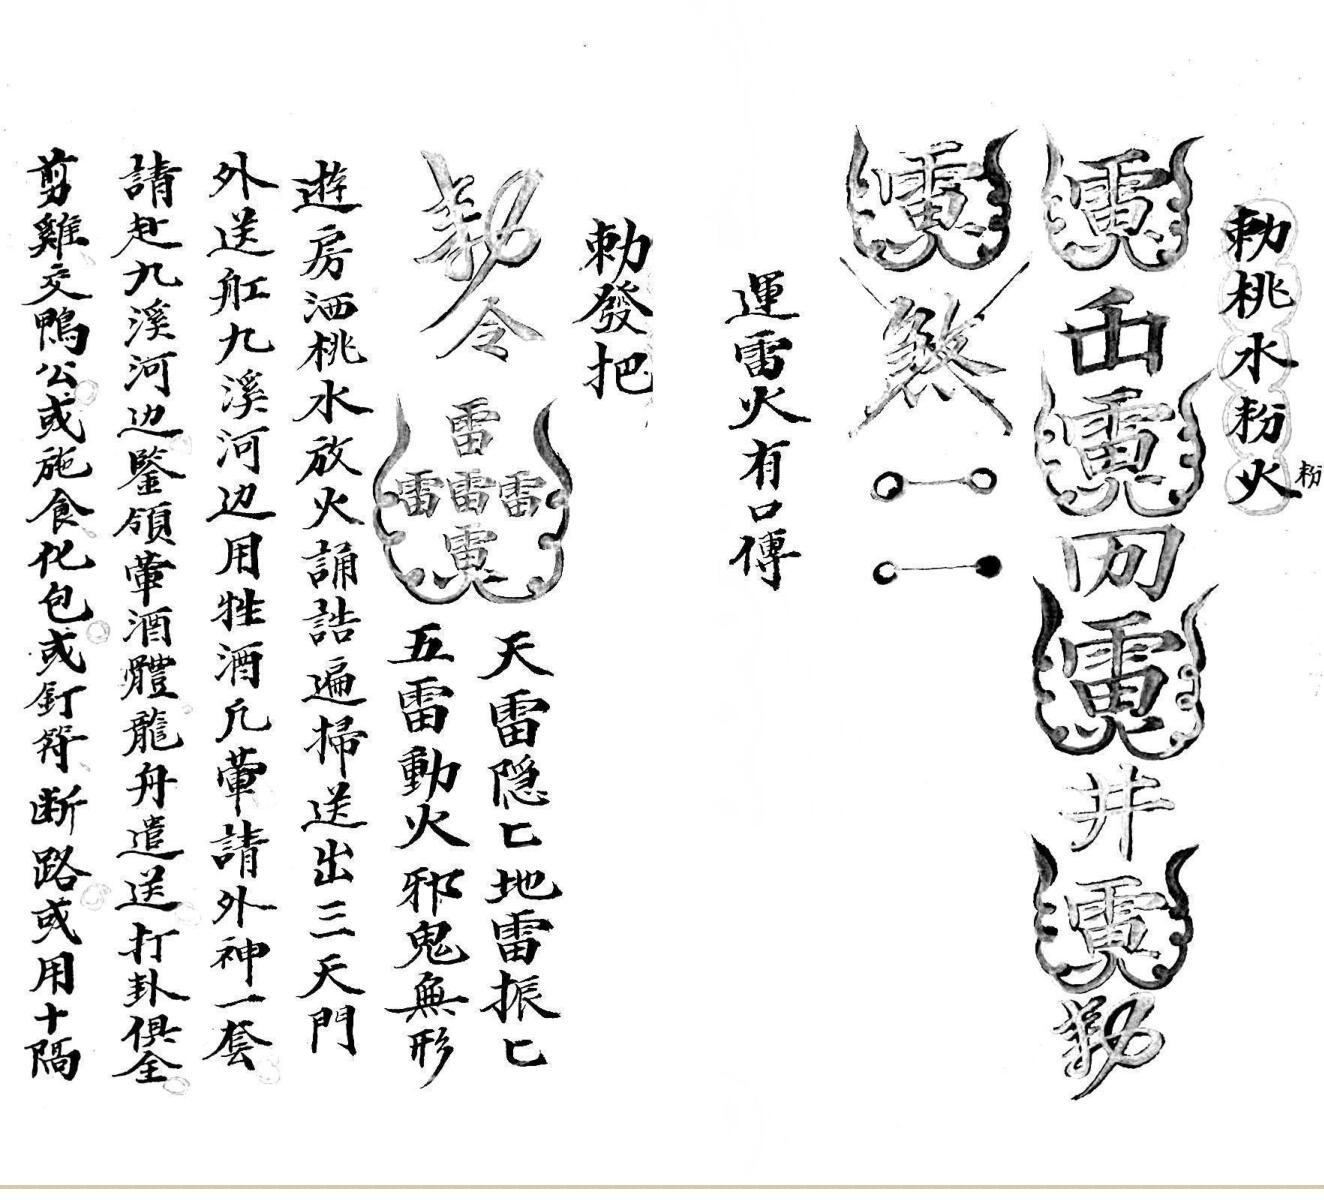 勅桃水粉火
粉
井
煞
運雷火有口傳
勅發把
令
雷
雷雷雷
天雷隠匕地雷振匕
五雷動火邪鬼無形
遊房洒桃水放火誦誥遍掃送出三天門
外送舡九溪河边用牲酒凢葷請外神一套
請赴九溪河边鑒領葷酒體龍舟遣送打卦俱全
剪雞交鴨公或施食化包或釘符断路或用十隔